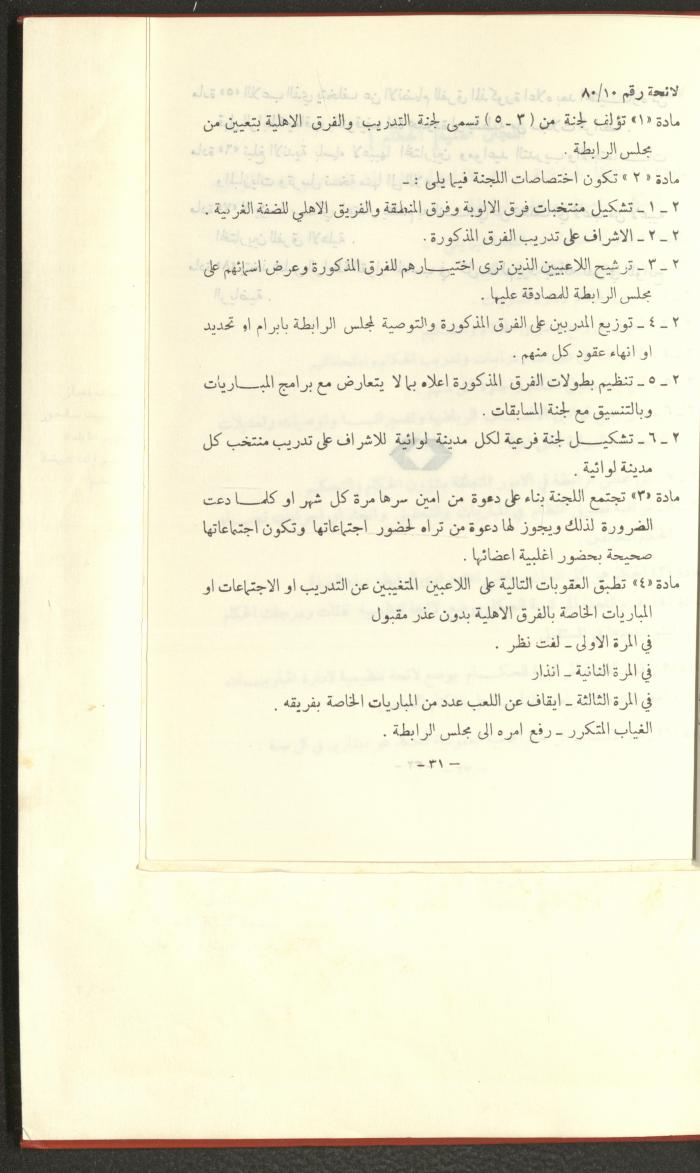 لائحة رقم ٨٠/١٠
مادة «١» تؤلف لجنة من (٣ ـ ٥) تسمى لجنة التدريب والفرق الاهلية بتعيين من
مجلس الرابطة .
مادة «٢» تكون اختصاصات اللجنة فيما يلى : ـ
٢ ـ ١ ـ تشكيل منتخبات فرق الالوية وفرق المنطقة والفريق الاهلي للضفة الغربية .
٢ ـ ٢ ـ الاشراف على تدريب الفرق المذكورة .
٢ ـ ٣ ـ ترشيح اللاعبيين الذين ترى اختيـــارهم للفرق المذكورة وعرض اسمائهم على
مجلس الرابطة للمصادقة عليها .
٢ ـ ٤ ـ توزيع المدربين على الفرق المذكورة والتوصية لمجلس الرابطة بابرام او تحديد
او انهاء عقود كل منهم .
٢ ـ ٥ ـ تنظيم بطولات الفرق المذكورة اعلاه بما لا يتعارض مع برامج المبـــاريات
وبالتنسيق مع لجنة المسابقات .
٢ ـ ٦ ـ تشكيـــل لجنة فرعية لكل مدينة لوائية للاشراف على تدريب منتخب كل
مدينة لوائية .
مادة «٣» تجتمع اللجنة بناء على دعوة من امين سرها مرة كل شهر او كلمـــا دعت
الضرورة لذلك ويجوز لها دعوة من تراه لحضور اجتماعاتها وتكون اجتماعاتها
صحيحة بحضور اغلبية اعضائها .
مادة «٤» تطبق العقوبات التالية على اللاعبين المتغيبين عن التدريب او الاجتماعات او
المباريات الخاصة بالفرق الاهلية بدون عذر مقبول
في المرة الاولى ـ لفت نظر .
في المرة الثانية ـ انذار
في المرة الثالثة ـ ايقاف عن اللعب عدد من المباريات الخاصة بفريقه .
الغياب المتكرر ـ رفع امره الى مجلس الرابطة .
ـ ٣١ ـ